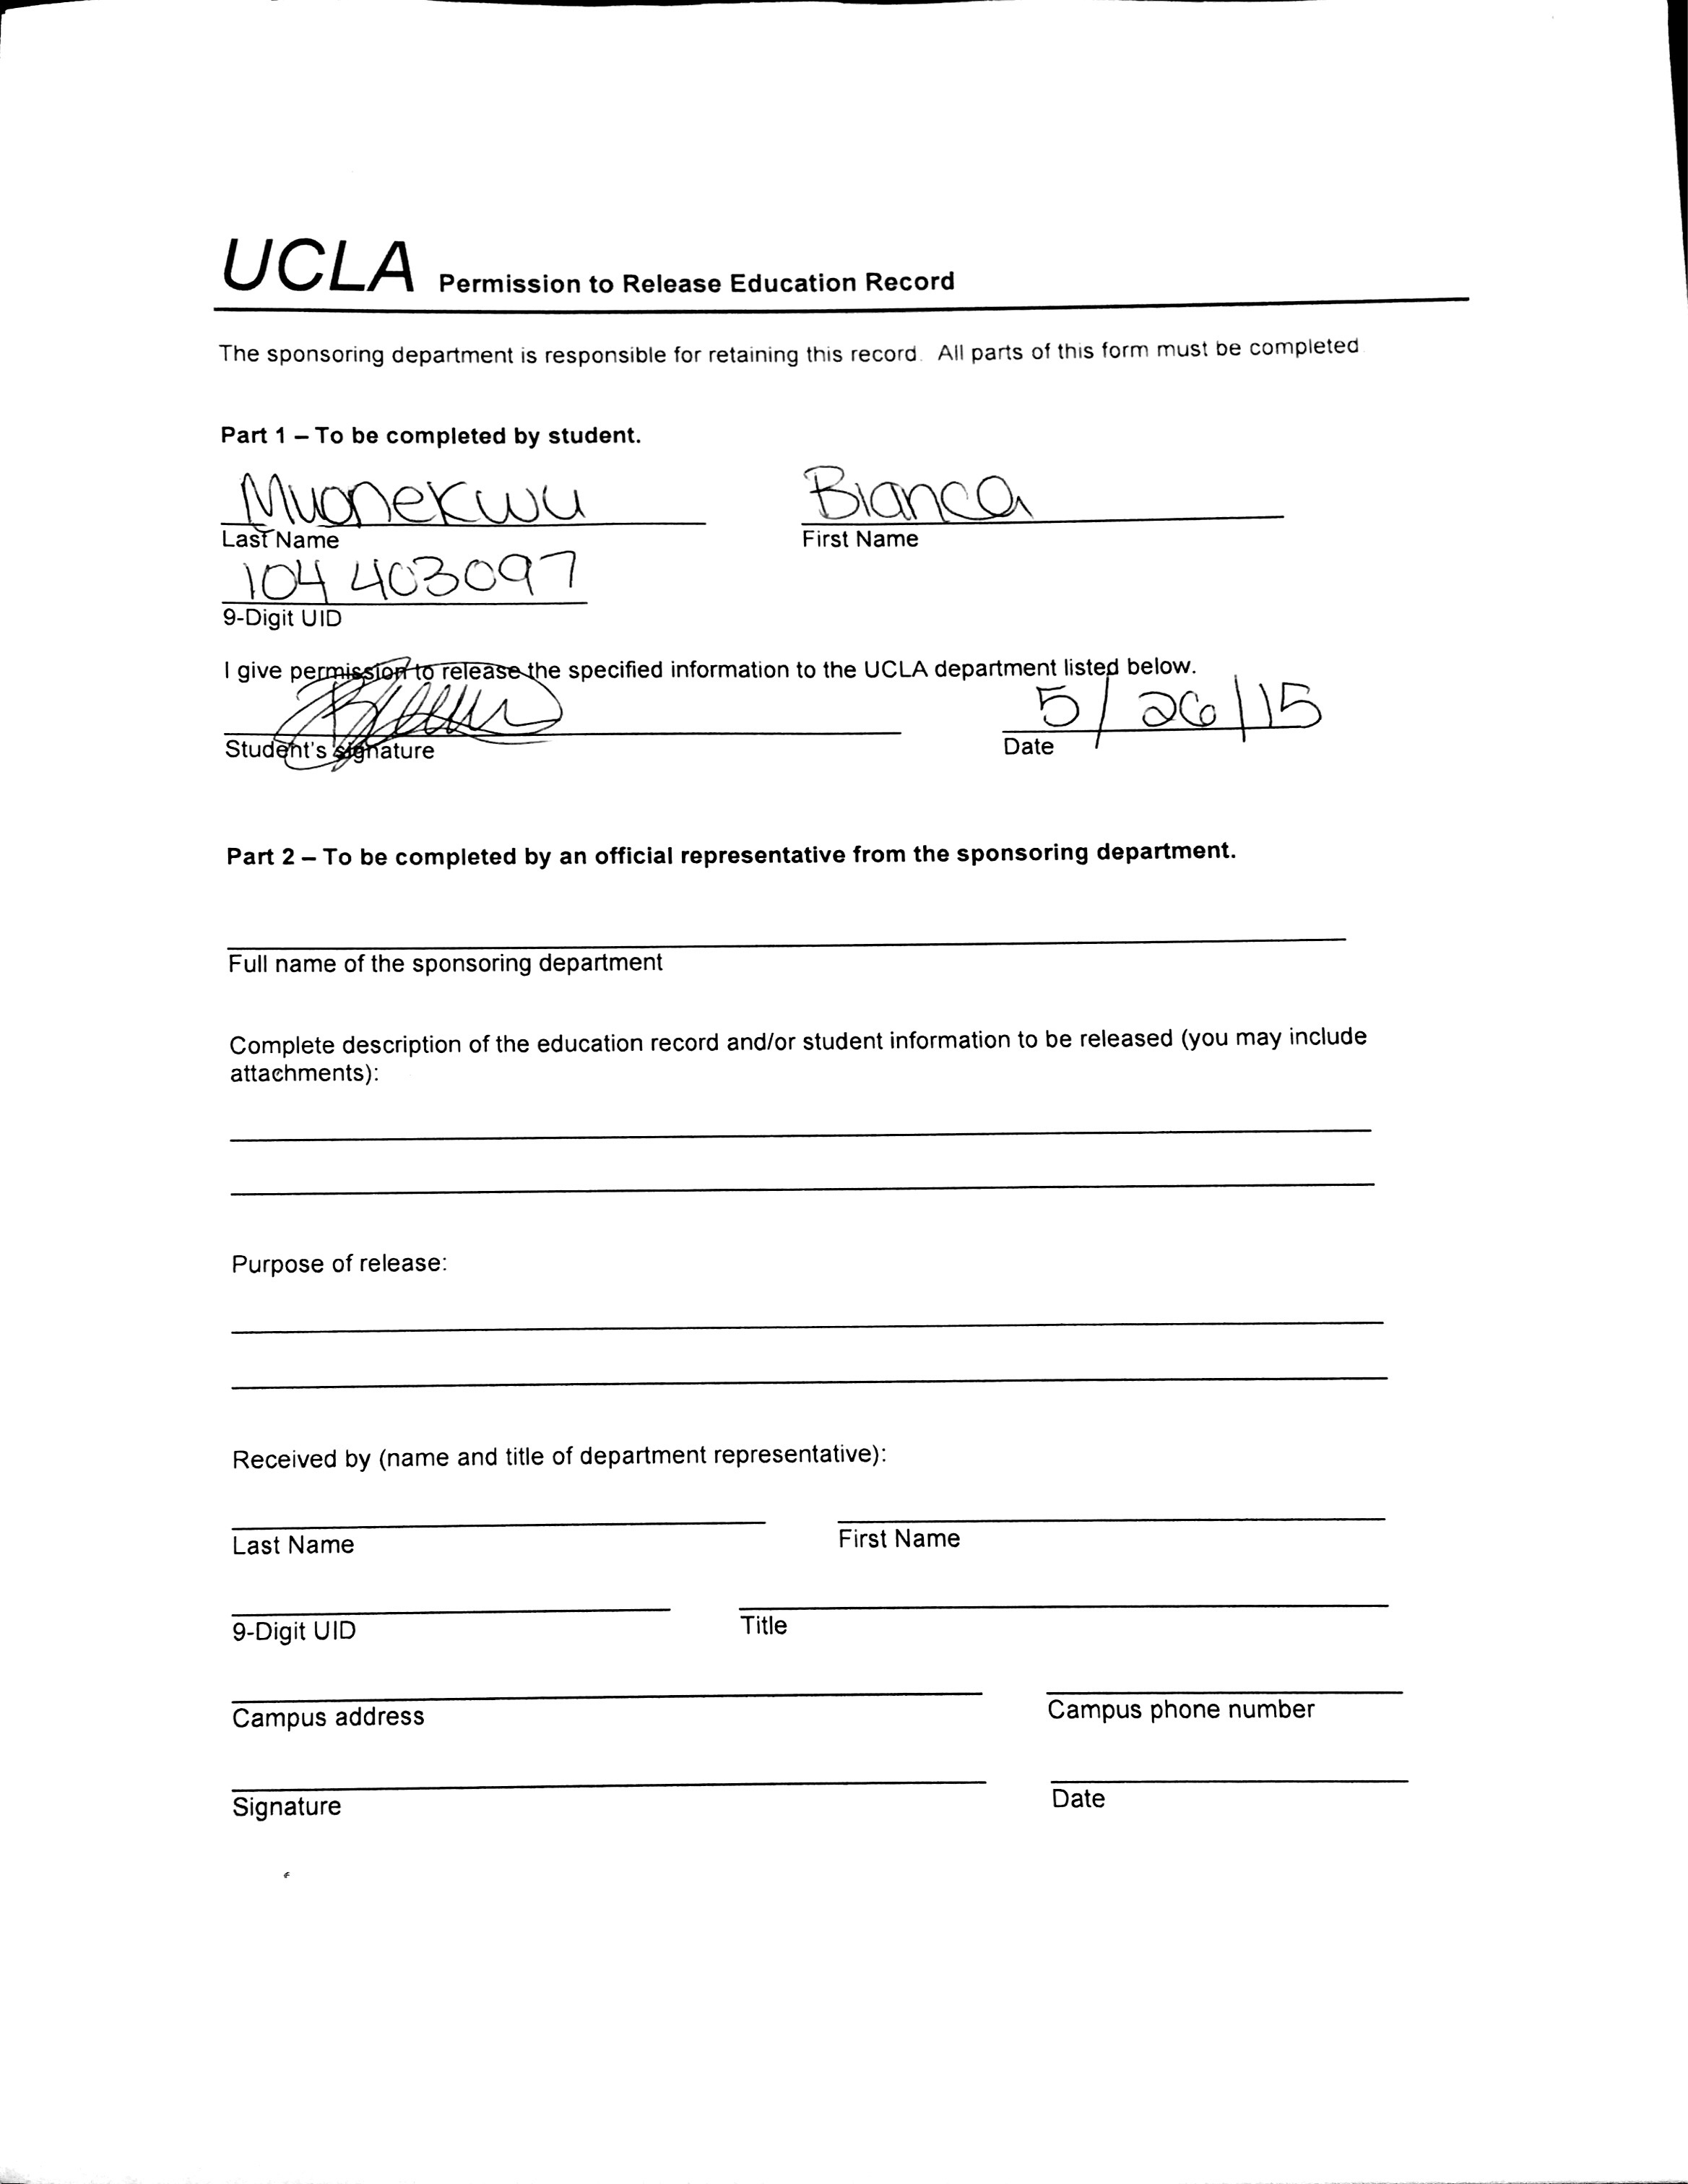 UCLA Permission to Release Education Record
The sponsoring department is responsible for retaining this record. All parts of this form must be completed
Part 1 – To be completed by student.
Muonekwu Bianca
Last Name First Name
104 403097
9-Digit UID
I give permission to release the specified information to the UCLA department listed below.
5/26/15
Student's signature Date
Part 2 – To be completed by an official representative from the sponsoring department.
Full name of the sponsoring department
Complete description of the education record and/or student information to be released (you may include
attachments):
Purpose of release:
Received by (name and title of department representative):
Last Name First Name
9-Digit UID Title
Campus address Campus phone number
Signature Date